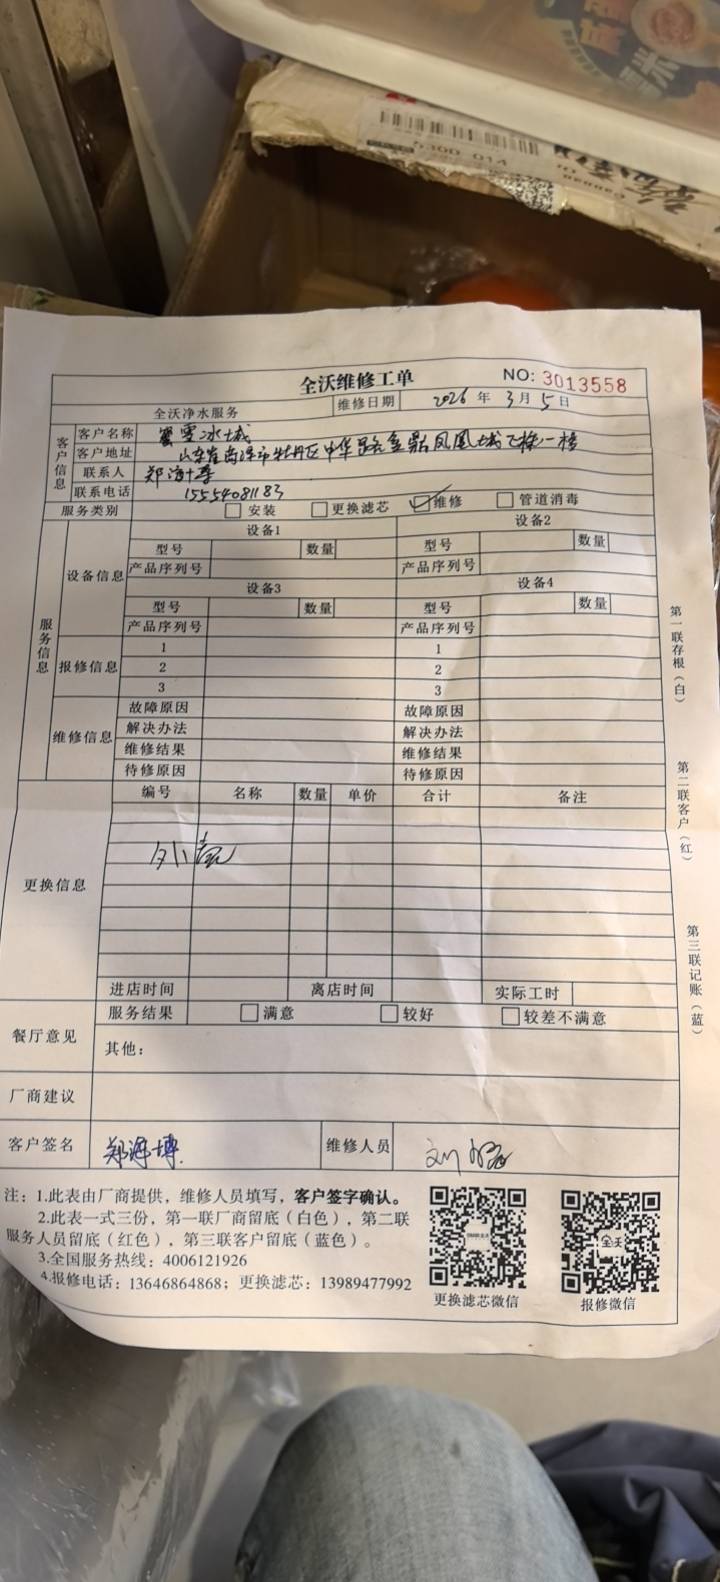 5300 014
全沃维修工单
NO: 3013558
全沃净水服务 维修日期 2026 年 3 月 5 日
客户信息
客户名称 蜜雪冰城
客户地址 山东省菏泽市牡丹区中华路金鼎凤凰城
联系人 郑海博
联系电话 15554081183
服务类别 安装 更换滤芯 维修 管道消毒
服务信息
设备信息
设备1 设备2
型号 数量 型号 数量
产品序列号 产品序列号
设备3 设备4
型号 数量 型号 数量
产品序列号 产品序列号
报修信息
1 1
2 2
3 3
维修信息
故障原因 故障原因
解决办法 解决办法
维修结果 维修结果
待修原因 待修原因
更换信息
编号 名称 数量 单价 合计 备注
进店时间 离店时间 实际工时
餐厅意见
服务结果 满意 较好 较差不满意
其他：
厂商建议
客户签名 郑海博 维修人员 刘
注：1.此表由厂商提供，维修人员填写，客户签字确认。
2.此表一式三份，第一联厂商留底（白色），第二联
服务人员留底（红色），第三联客户留底（蓝色）。
3.全国服务热线：4006121926
4.报修电话：13646864868；更换滤芯：13989477992
更换滤芯微信 报修微信
第一联存根（白）
第二联客户（红）
第三联记账（蓝）